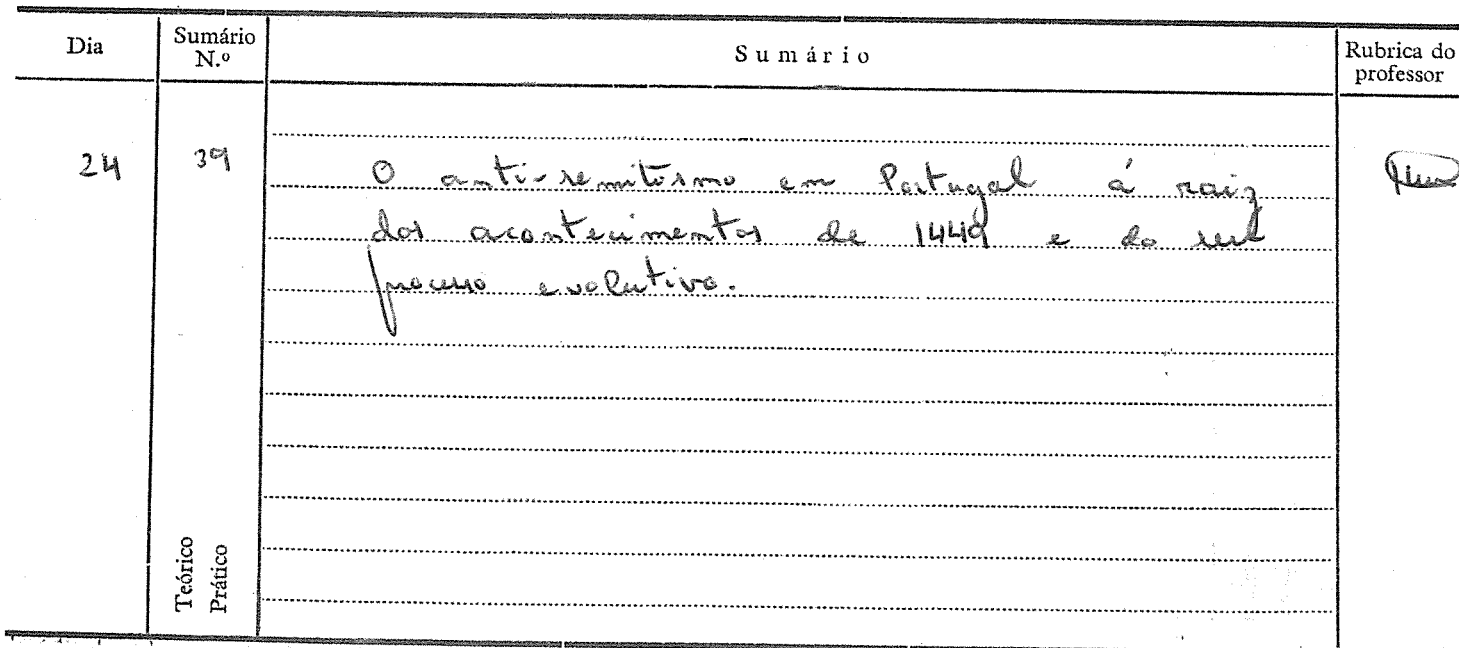 Dia
Sumário
N.º
Sumário
Rubrica do
professor
24
39
O anti-semitismo em Portugal á raiz
dos acontecimentos de 1449 e do seu
processo evolutivo.
Teórico
Prático